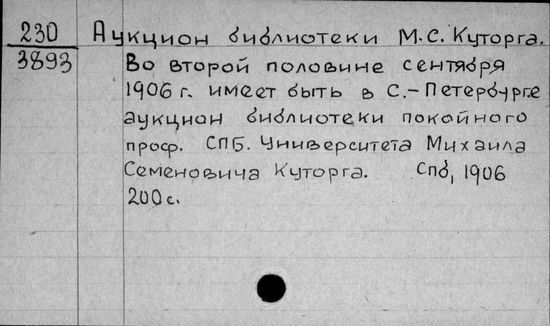 230 Аукцион библиотеки М.С. Куторга.
3893 Во второй половине сентября
1906 г. имеет быть в С.-Петербурге
аукцион библиотеки покойного
проф. СПБ. Университета Михаила
Семеновича Куторга. Спб, 1906
200 с.